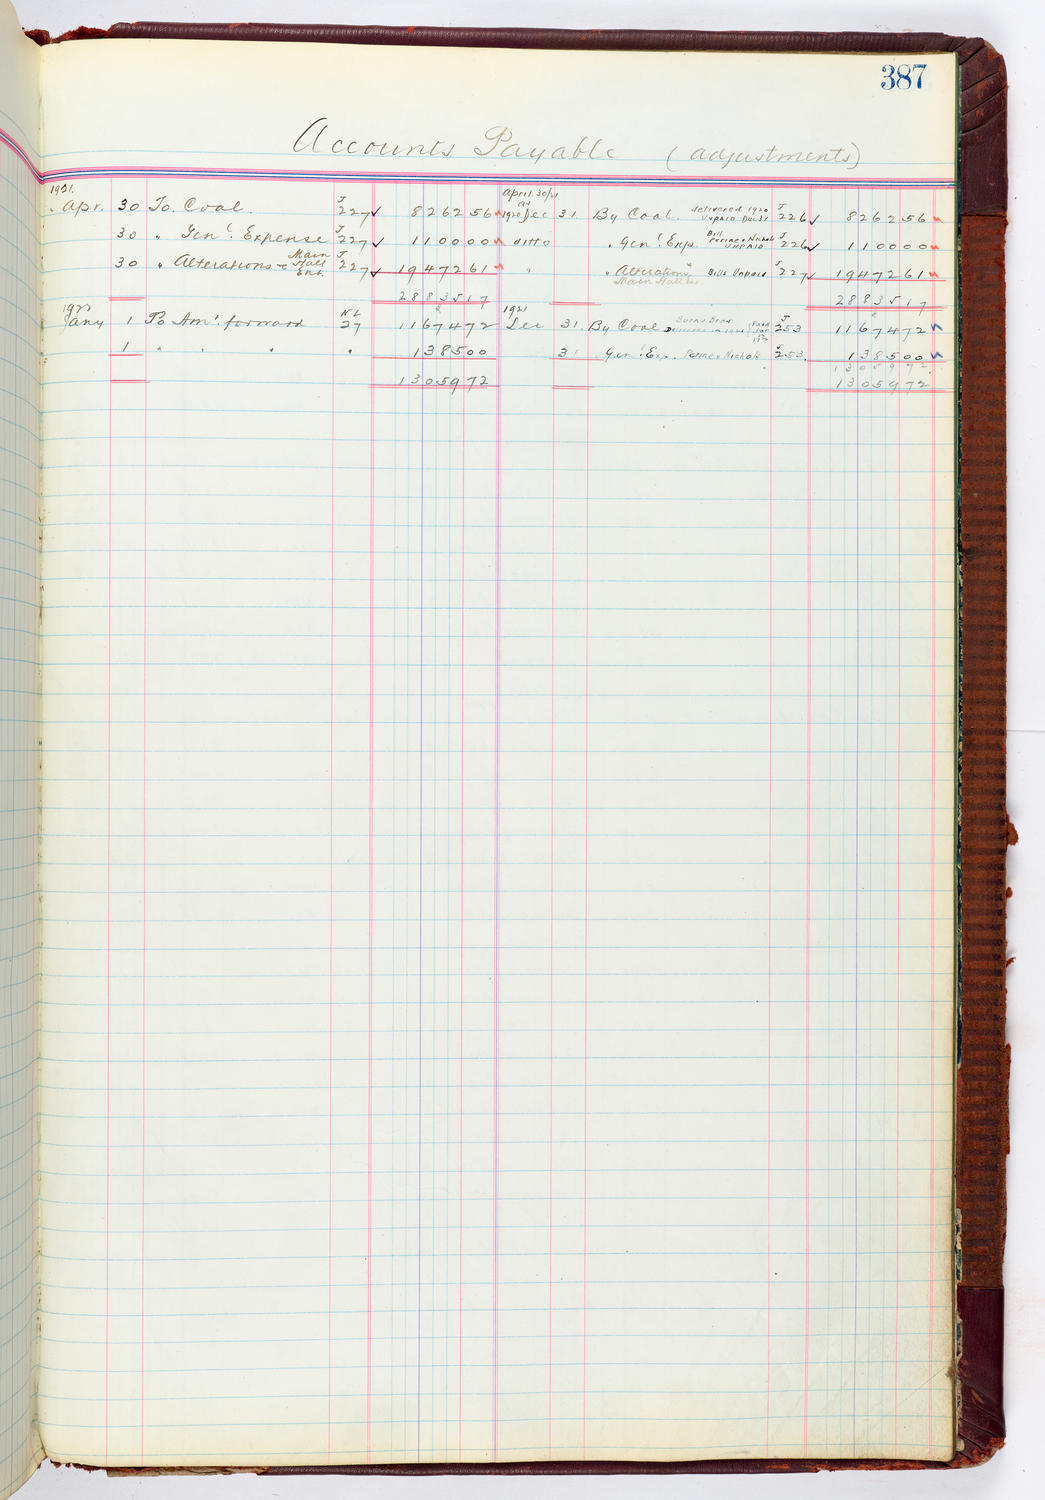 387
Accounts Payable (adjustments)
1921. April. 30/21
as
Apr. 30 To Coal. J 227 ✓ 8262 56 1920 Dec 31. By Coal. delivered 1920 Unpaid Dec 31 J 226 ✓ 8262 56
30 " Genl. Expense J 227 ✓ 1100 00 ditto " Genl Exps. Bill Perine & Nichols Unpaid J 226 ✓ 1100 00
30 " Alterations - Main Hall Ent. J 227 ✓ 19472 61 " " Alterations Main Hall Bills Unpaid J 227 ✓ 19472 61
28835 17 28835 17
1922 1921
Jany 1 To Amt. forward NL 27 11674 72 Dec 31. By Coal Burns Bros Delivered in 1921 Paid J 253 11674 72
1 " " " " 1385 00 31 Genl. Exp. Perine & Nichols J 253. 1385 00
13059 72
13059 72 13059 72